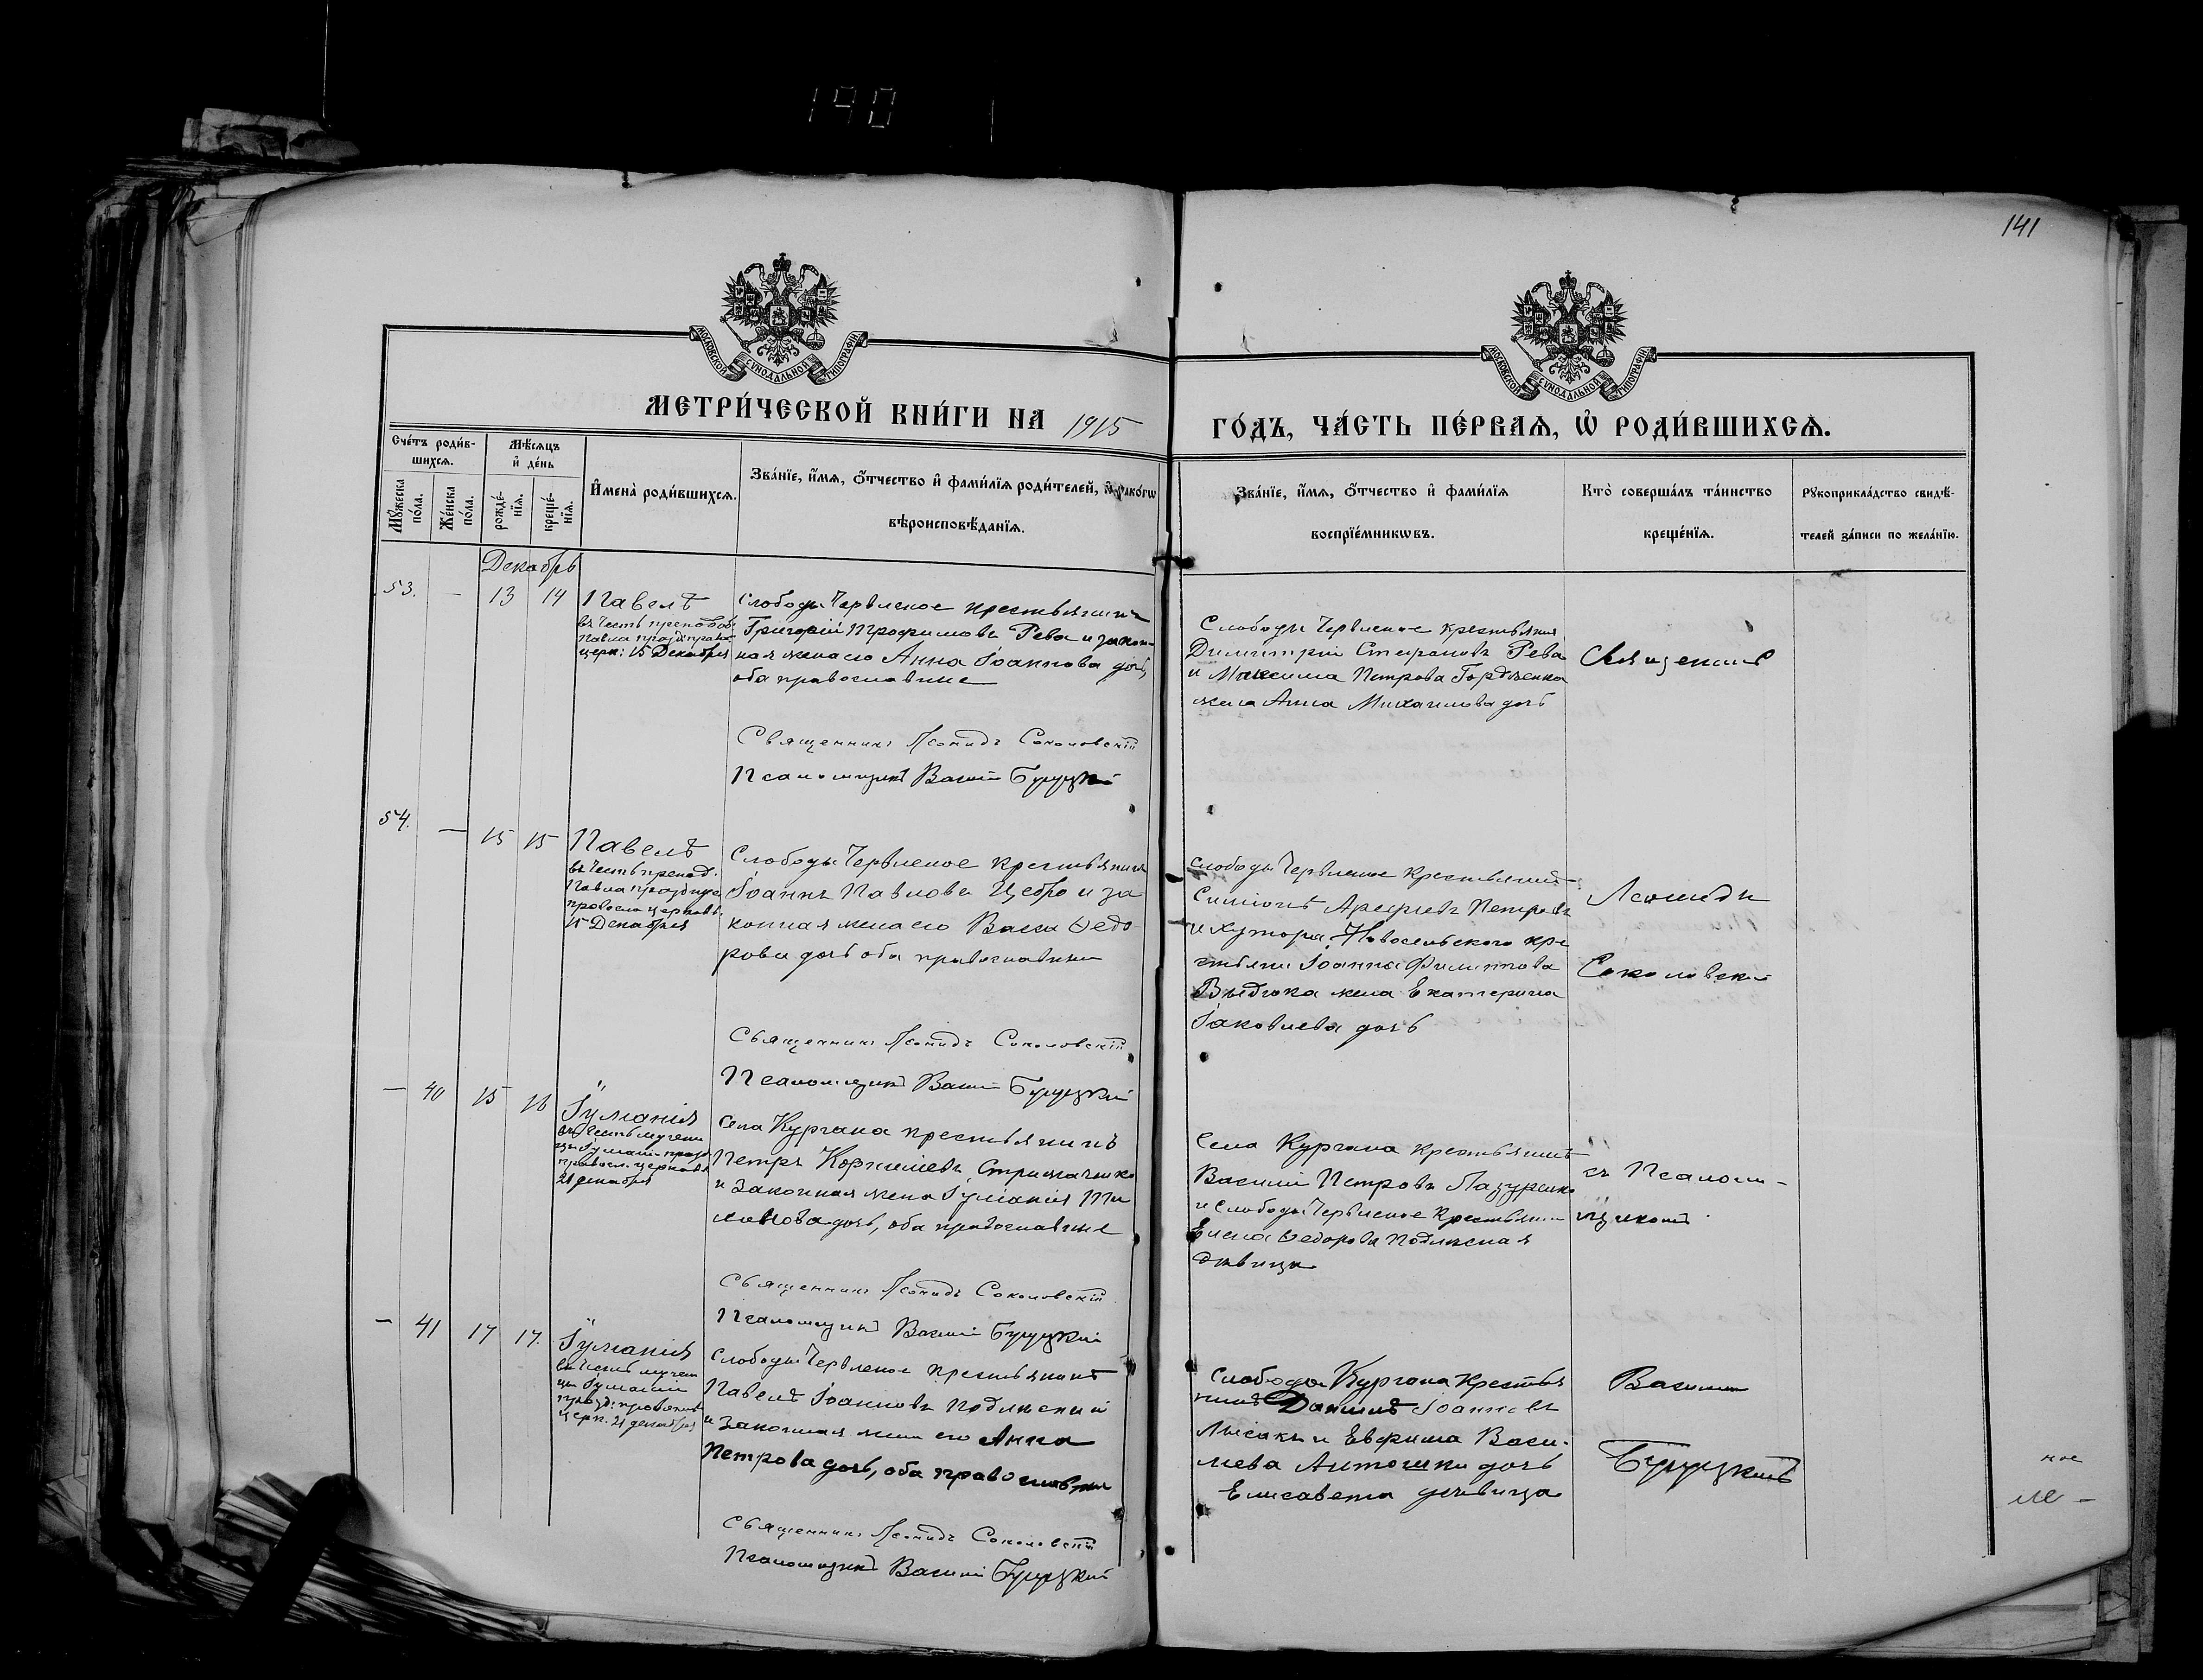 190
141
МОСКОВСКОЙ СѴНОДАЛЬНОЙ ТИПОГРАФІИ
МОСКОВСКОЙ СѴНОДАЛЬНОЙ ТИПОГРАФІИ
МЕТРИ́ЧЕСКОЙ КНИ́ГИ НА 1915 ГО́ДЪ, ЧА́СТЬ ПЕ́РВАѦ, Ѡ҆ РОДИ́ВШИХСѦ.
Сче́тъ роди́в-
шихсѧ.
Мꙋ́жеска по́ла.
Же́нска по́ла.
Мѣ́сѧцъ
и҆ де́нь
рожде́-
нїѧ.
креще́-
нїѧ.
И҆мена̀ роди́вшихсѧ.
Зва́нїе, и҆́мѧ, ѻ҆́тчество и҆ фами́лїѧ роди́телей, и҆ како́гѡ
вѣроисповѣ́данїѧ.
Зва́нїе, и҆́мѧ, ѻ҆́тчество и҆ фами́лїѧ
воспрїе́мникѡвъ.
Кто̀ соверша́лъ та́инство
креще́нїѧ.
Рꙋкоприкла́дство свидѣ́-
телей за́писи по жела́нїю.
Декабрь
53. — 13 14 Павелъ
въ честь преподоб.
Павла празд. прав.
церк: 15 Декабря
Слободы Червленое крестьянинъ
Григорій Трофимовъ Рева и закон-
ная жена его Анна Іоаннова дочь,
оба православные
Священникъ Леонидъ Соколовскій
Псаломщикъ Василій
Слободы Червленое крестьянинъ
Димитрій Стефановъ Рева
и Максима Петрова Гордіенка
жена Анна Михаилова дочь
Священникъ
54. — 15 15 Павелъ
въ честь препод.
Павла празднуем.
православ. церковь
15 Декабря
Слободы Червленое крестьянинъ
Іоаннъ Павловъ Цебро и за
конная жена его Васса Ѳедо
рова дочь оба православные
Священникъ Леонидъ Соколовскій
Псаломщикъ Василій
Слободы Червленое крестьянинъ
Симеонъ Арефіевъ Петровъ
и хутора Новосельского кре
стьяни Іоанна Филиппова
жена Екатерина
Іаковлева дочь
Леонидъ
Соколовскій
— 40 15 16 Іуліанія
въ честь мучени
цы Іуліаніи празд.
правосл. церковь
21 декабря
Села Кургана крестьянинъ
Петръ Корниліевъ
и законная жена Іуліанія Ти
дочь, оба православные
Священникъ Леонидъ Соколовскій
Псаломщикъ Василій
Села Кургана крестьянинъ
Василій Петровъ Лазуренко
и Слободы Червленое крестьянка
Елена Ѳедорова Подлѣсная
дѣвица
съ Псалом-
щикомъ
— 41 17 17. Іуліанія
въ честь мучени
цы Іуліаніи
празд. православн.
церк. 21 декабря
Слободы Червленое крестьянинъ
Павелъ Іоанновъ Подлѣсный
и законная жена его Анна
Петрова дочь, оба православные
Священникъ Леонидъ Соколовскій
Псаломщикъ Василій
Слободы Кургана крестья
нинъ Даніилъ Іоанновъ
Лысакъ и Евфима Васи-
лева Антошки дочь
Елисавета дѣвица
Василіемъ